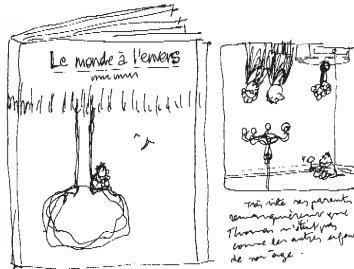 Le monde à l'envers
Très vite ses parents
remarquèrent que
Thomas n'était pas
comme les autres enfants
de son âge.